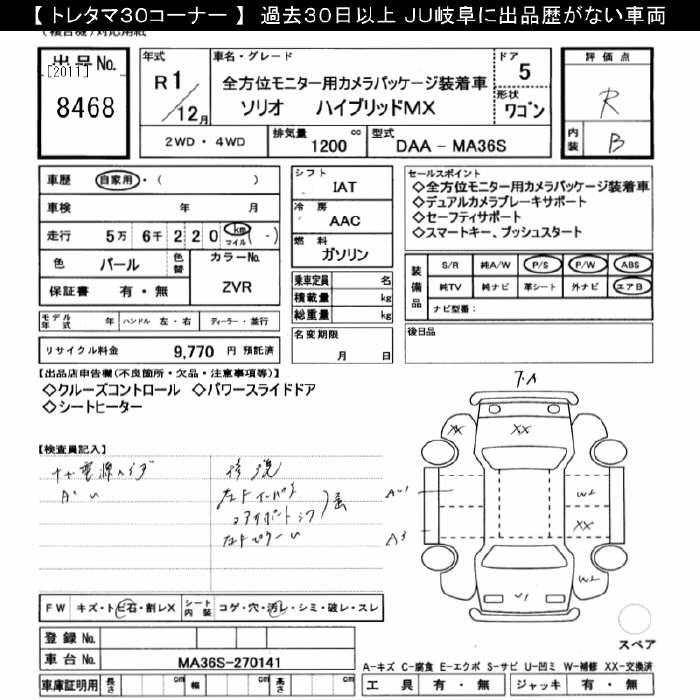 【 トレタマ30コーナー 】 過去30日以上 JU岐阜に出品歴がない車両
出品 No.
[2011]
8468
年式
R 1
/12月
車名・グレード
全方位モニター用カメラパッケージ装着車
ソリオ ハイブリッドMX
ドア 5
形状 ワゴン
2WD ・ 4WD
排気量 1200 cc
型式 DAA - MA36S
評価点
R
内装 B
車歴 自家用 ・ ( )
車検 年 月
走行 5万 6千 2 2 0 km マイル ( - )
色 パール 色替
カラーNo. ZVR
保証書 有 ・ 無
モデル年式 年 ハンドル 左 ・ 右 ディーラー ・ 並行
リサイクル料金 9,770 円 預託済
シフト IAT
冷房 AAC
燃料 ガソリン
乗車定員 名
積載量 kg
総重量 kg
名変期限
月 日
セールスポイント
◇全方位モニター用カメラパッケージ装着車
◇デュアルカメラブレーキサポート
◇セーフティサポート
◇スマートキー、プッシュスタート
装備品 S/R 純A/W P/S P/W ABS
純TV 純ナビ 革シート 外ナビ エアB
ナビ型番:
後日品
【出品店申告欄(不良箇所・欠品・注意事項等)】
◇クルーズコントロール ◇パワースライドドア
◇シートヒーター
【検査員記入】
修復
XX
XX
W2
XX
W2
U1
FW キズ・トビ石・割レX シート内装 コゲ・穴・汚レ・シミ・破レ・スレ
スペア
登録 No.
車台 No. MA36S-270141
車庫証明用 長さ cm 幅 cm 高さ cm
A-キズ C-腐食 E-エクボ S-サビ U-凹ミ W-補修 XX-交換済
工具 有 ・ 無 ジャッキ 有 ・ 無